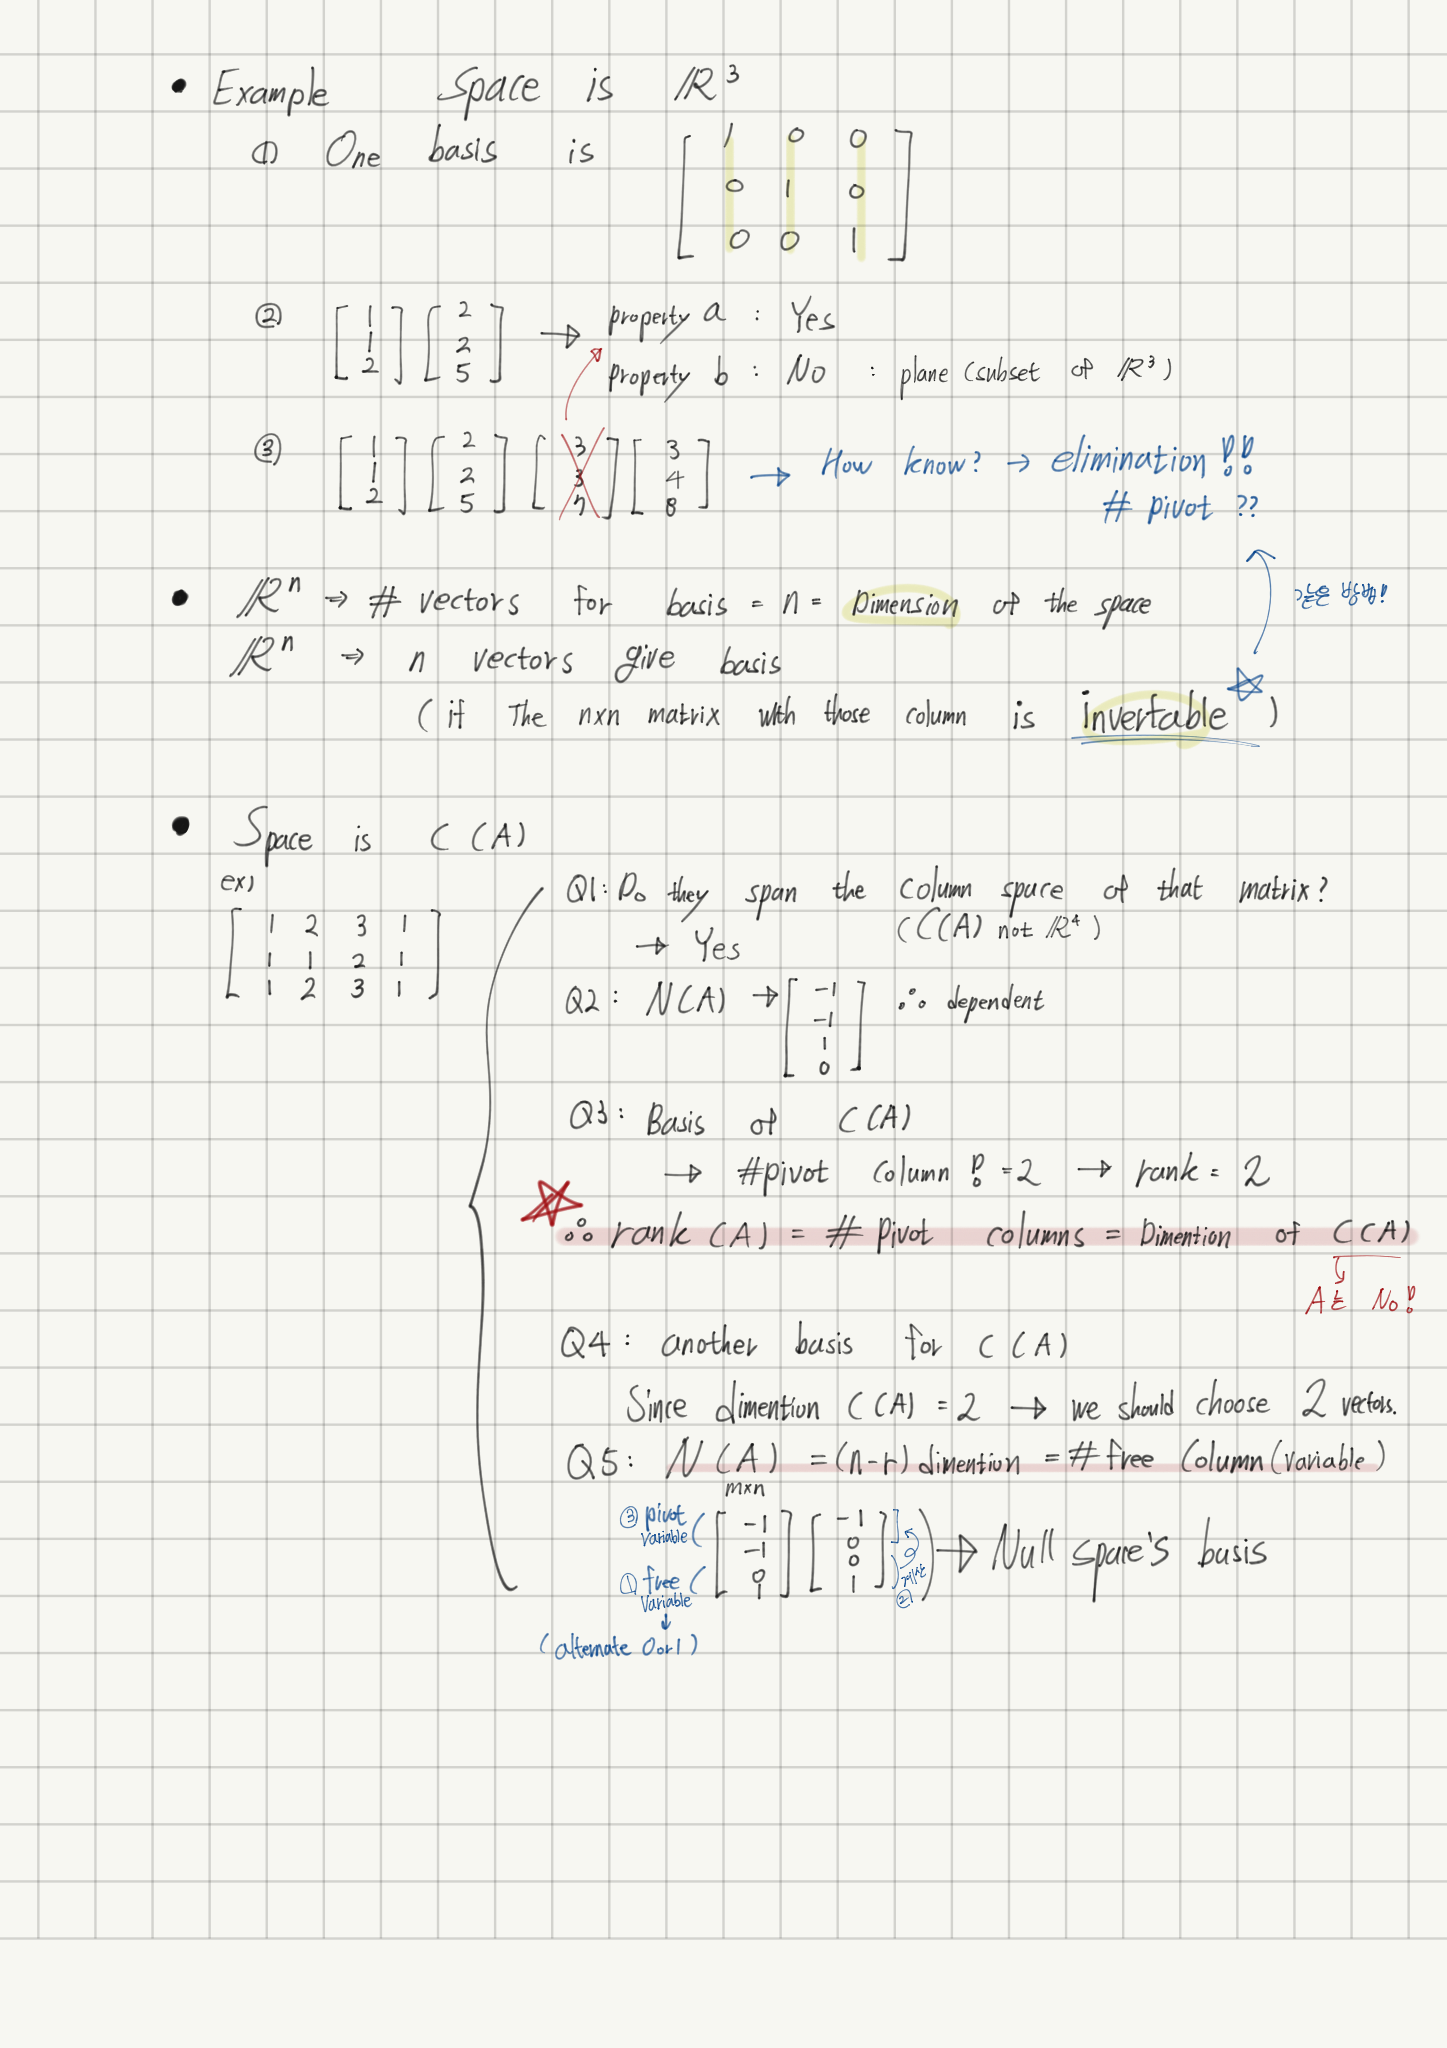 • Example Space is ℝ³
① One basis is [1 0 0
0 1 0
0 0 1]
② [1 1 2] [2 2 5] → property a : Yes
property b : No : plane (subset of ℝ³)
③ [1 1 2] [2 2 5] [3 3 7] [3 4 8] → How know? → elimination!!
# pivot ??
• ℝⁿ → # vectors for basis = n = Dimension of the space
같은 방법!
ℝⁿ → n vectors give basis
(if The nxn matrix with those column is invertable ☆)
• Space is C(A)
ex)
[1 2 3 1
1 1 2 1
1 2 3 1]
Q1: Do they span the column space of that matrix?
(C(A) not ℝ⁴)
→ Yes
Q2: N(A) → [-1 -1 1 0] ∴ dependent
Q3: Basis of C(A)
→ #pivot column! = 2 → rank = 2
☆ ∴ rank(A) = # pivot columns = Dimention of C(A)
A는 No!
Q4: another basis for C(A)
Since dimention C(A) = 2 → we should choose 2 vectors.
Q5: N(A) = (n-r) dimention = # free Column(Variable)
mxn
③ pivot variable ( [-1 -1 0 1] [-1 0 0 1] ) → Null space's basis
① free variable (
② 계산
↓
(alternate 0 or 1)